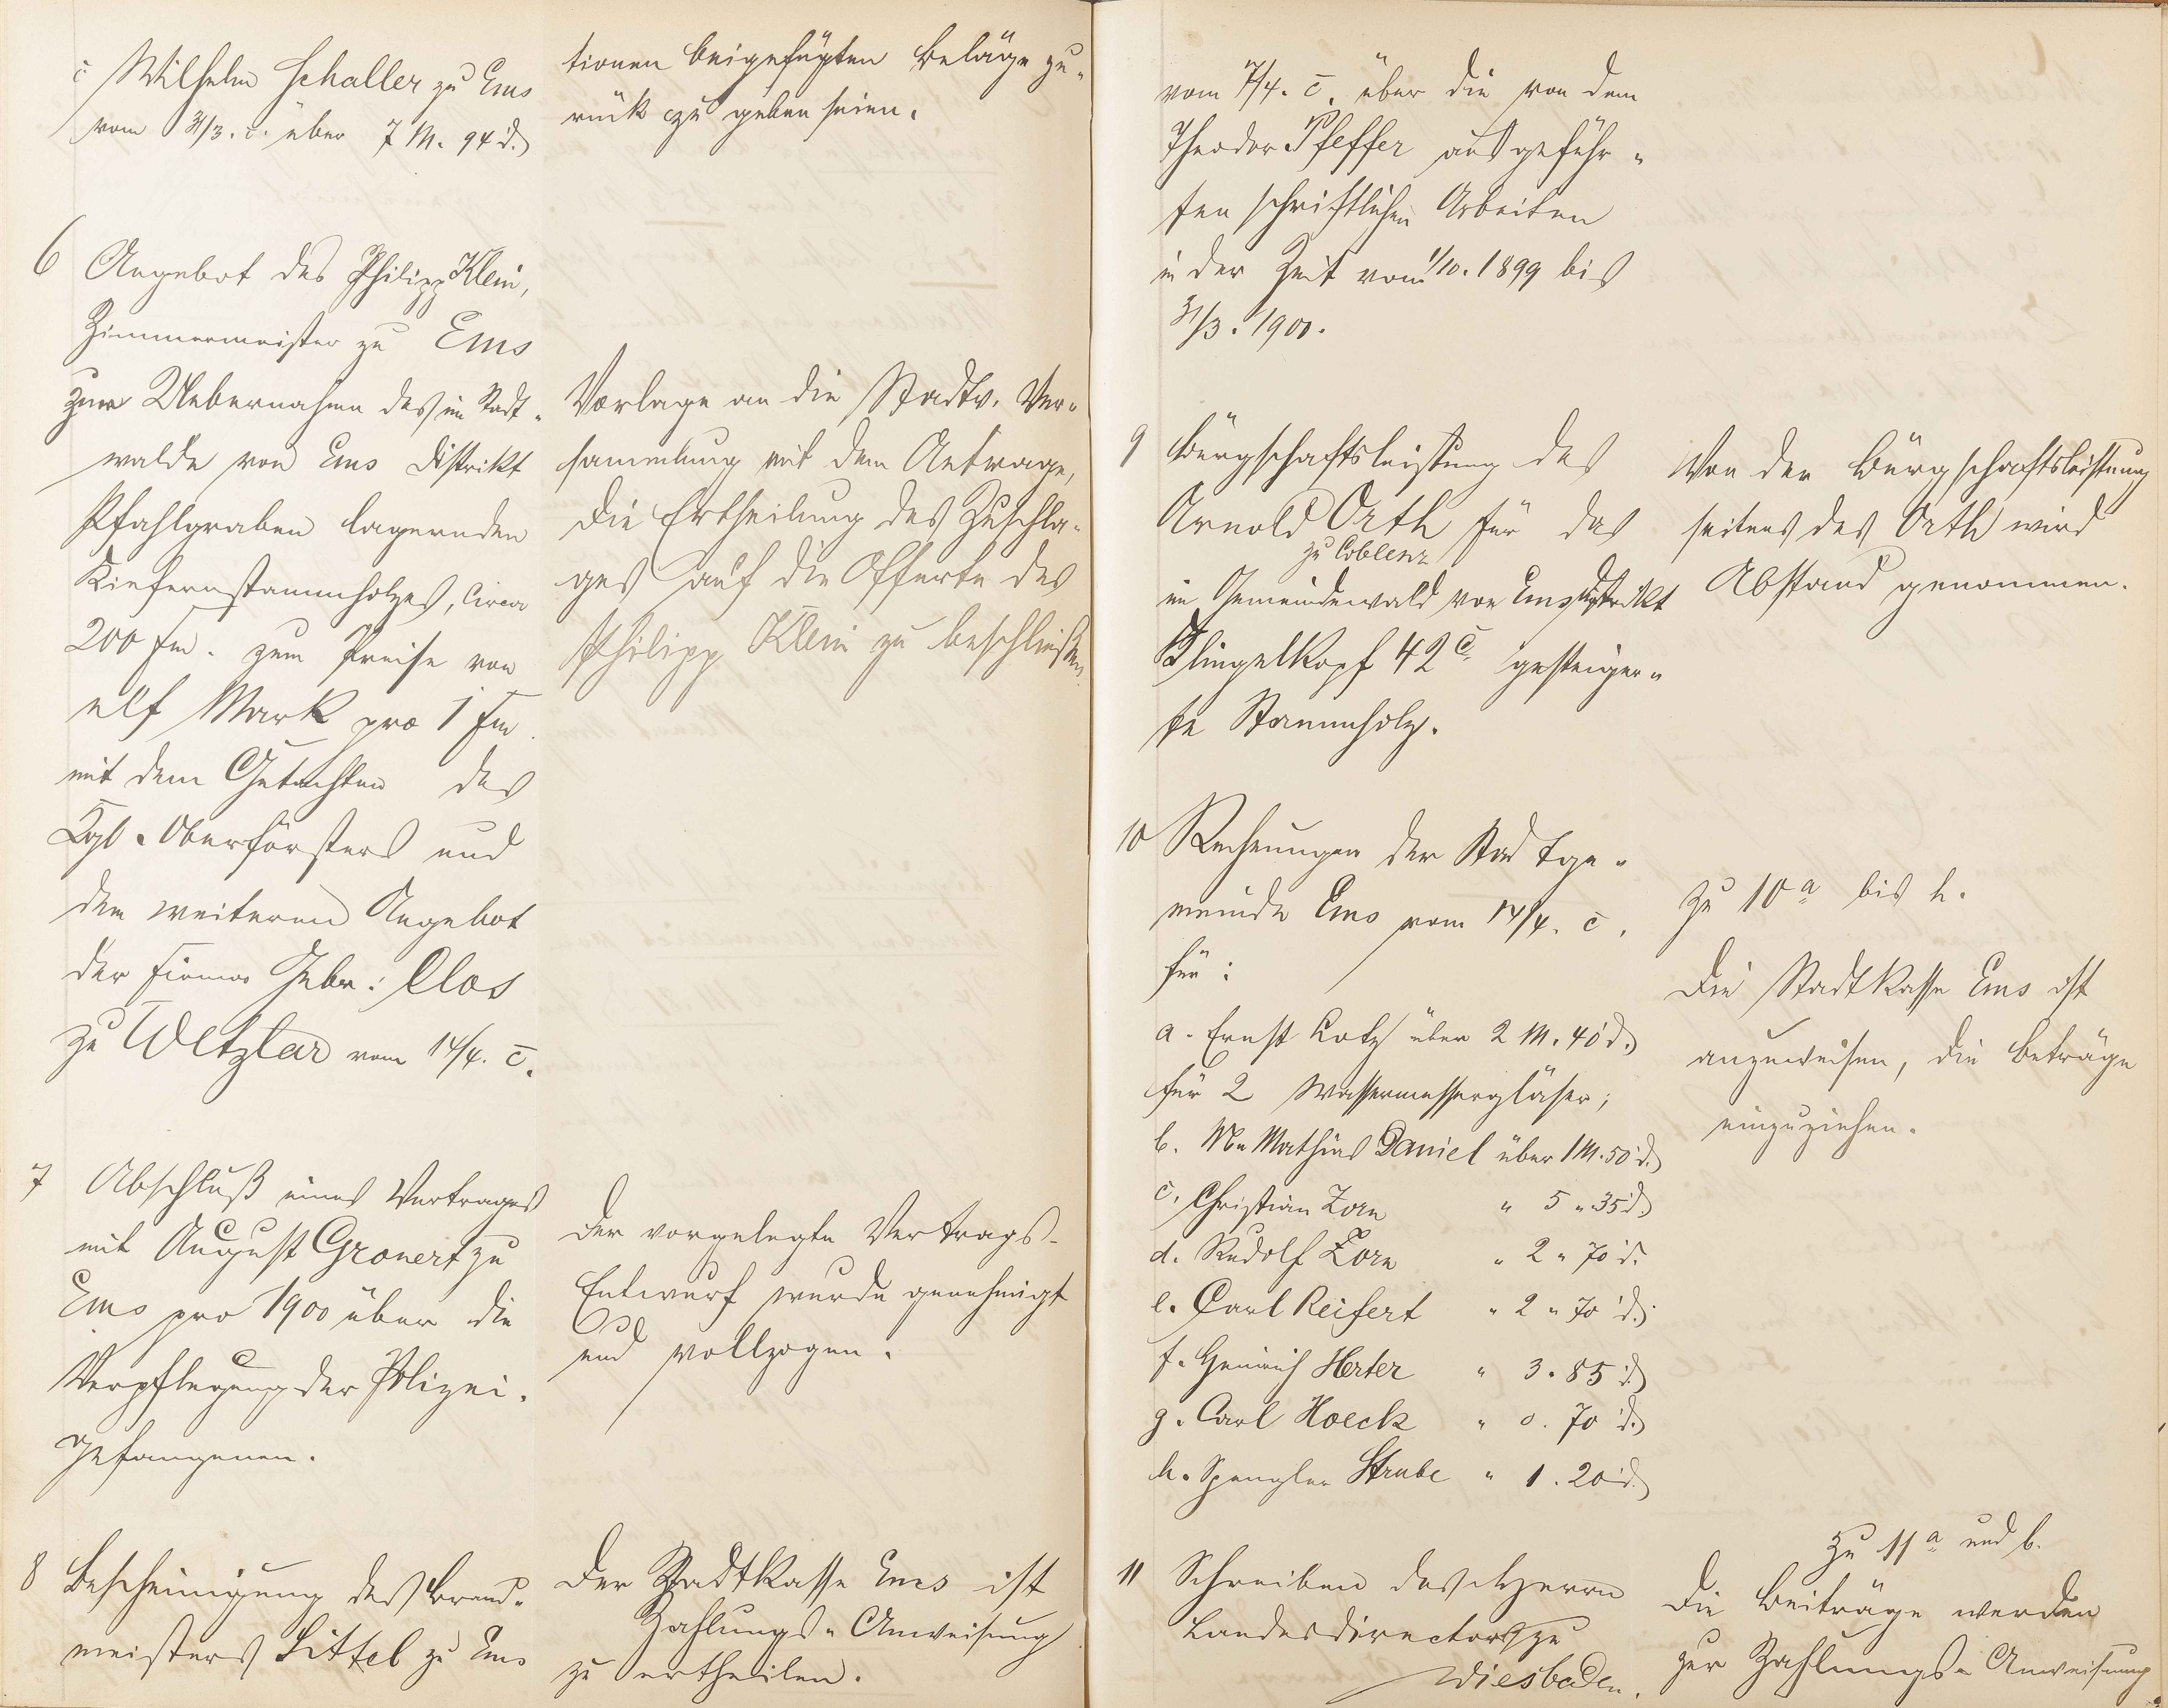 c Wilhelm Schaller zu Ems
vom 31/3. c. über 7 M. 94 d.
6 Angebot des Philipp Klein,
Zimmermeister zu Ems
zur Uebernahme des im Stadt-
walde von Ems Distrikt
Pfahlgraben lagernden
Kiefernstammholzes, circa
200 fm. zum Preise von
elf Mark pro 1 fm.
mit dem Gutachten des
Kgl. Oberförsters und
dem weiteren Angebot
der Firma Gebr: Clos
zu Wetzlar vom 14/4. c.
7 Abschluß eines Vertrages
mit August Gronert zu
Ems pro 1900 über die
Verpflegung der Polizei-
gefangenen.
8 Bescheinigung des Brand-
meisters Sittel zu Ems
tionen beigefügten Beläge zu-
rück zu geben seien.
Vorlage an die Stadtv. Ver-
sammlung mit dem Antrage,
die Ertheilung des Zuschla-
ges auf die Offerte des
Philipp Klein zu beschließen.
Der vorgelegte Vertrags-
Entwurf wurde genehmigt
und vollzogen.
Der Stadtkasse Ems ist
Zahlungs-Anweisung
zu ertheilen.
vom 7/4. c. über die von dem
Theodor Pfeffer ausgeführ-
ten schriftlichen Arbeiten
in der Zeit vom 1/10. 1899 bis
31/3. 1900.
9 Bürgschaftsleistung des
Arnold Orth für das
zu Coblenz
im Gemeindewald von Ems Distrikt
Klingelkopf 42 c. gesteiger-
te Stammholz.
10 Rechnungen der Stadtge-
meinde Ems vom 14/4. c.
für:
a. Ernst Lotz über 2 M. 40 d.
für 2 Wassermessergläser;
b. Mathias Daniel über 1 M. 50 d.
c. Christian Zorn " 5 " 35 d.
d. Rudolf Zorn " 2 " 70 d.
e. Carl Reifert " 2 " 70 d.
f. Heinrich Herter " 3. 85 d.
g. Carl Hoeck " 0. 70 d.
h. Spengler Strube " 1. 20 d.
11 Schreiben des Herrn
Landesdirectors zu
Wiesbaden.
Von der Bürgschaftsleistung
seitens des Orth wird
Abstand genommen.
Zu 10 a bis h.
Die Stadtkasse Ems ist
anzuweisen, die Beträge
einzuziehen.
Zu 11 a und b.
Die Beiträge werden
zur Zahlungs-Anweisung